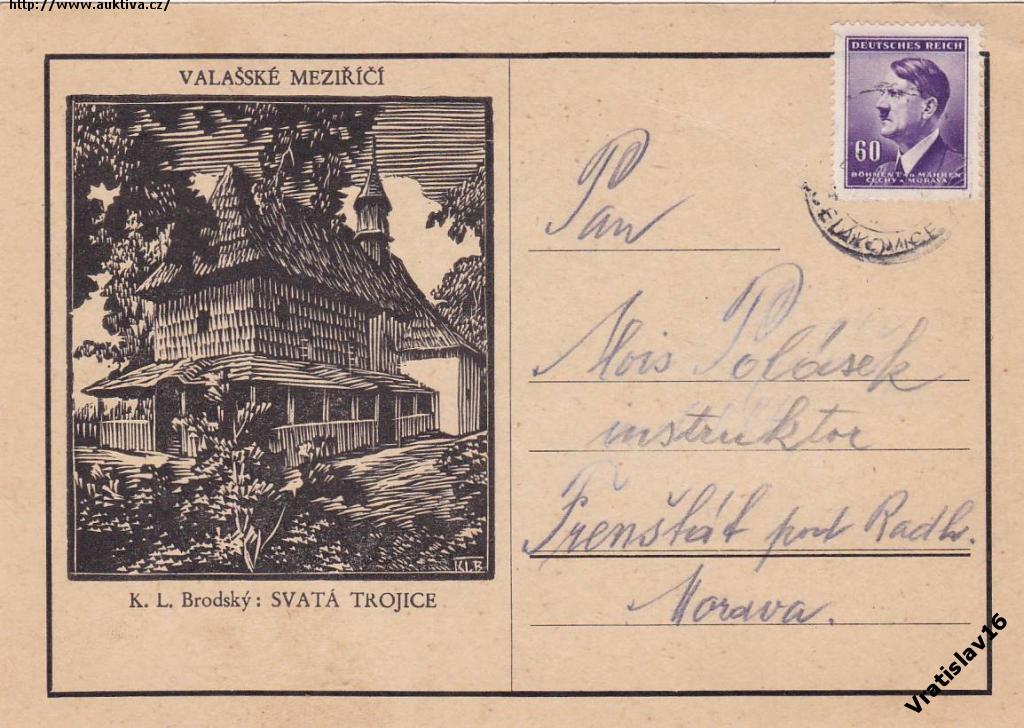 http://www.auktiva.cz/
VALAŠSKÉ MEZIŘÍČÍ
KLB
K. L. Brodský: SVATÁ TROJICE
DEUTSCHES REICH
60
BÖHMEN U. MÄHREN
ČECHY A MORAVA
ELAKOVICE
Pan
Alois Polášek
instruktor
Frenštát pod Radh.
Morava.
Vratislav16